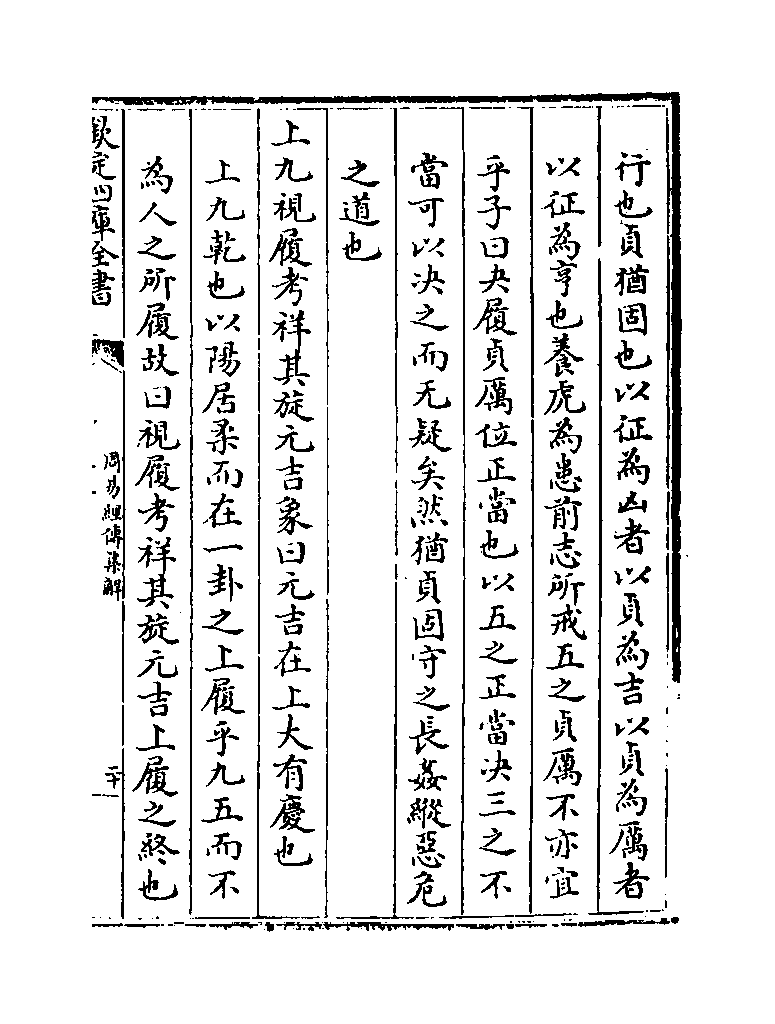 行也貞猶固也以征為凶者以貞為吉以貞為厲者
以征為亨也養虎為患前志所戒五之貞厲不亦宜
乎子曰夬履貞厲位正當也以五之正當决三之不
當可以决之而无疑矣然猶貞固守之長姦縱惡危
之道也
上九視履考祥其旋元吉象曰元吉在上大有慶也
上九乾也以陽居柔而在一卦之上履乎九五而不
為人之所履故曰視履考祥其旋元吉上履之終也
欽定四庫全書
周易經傳集解
二十